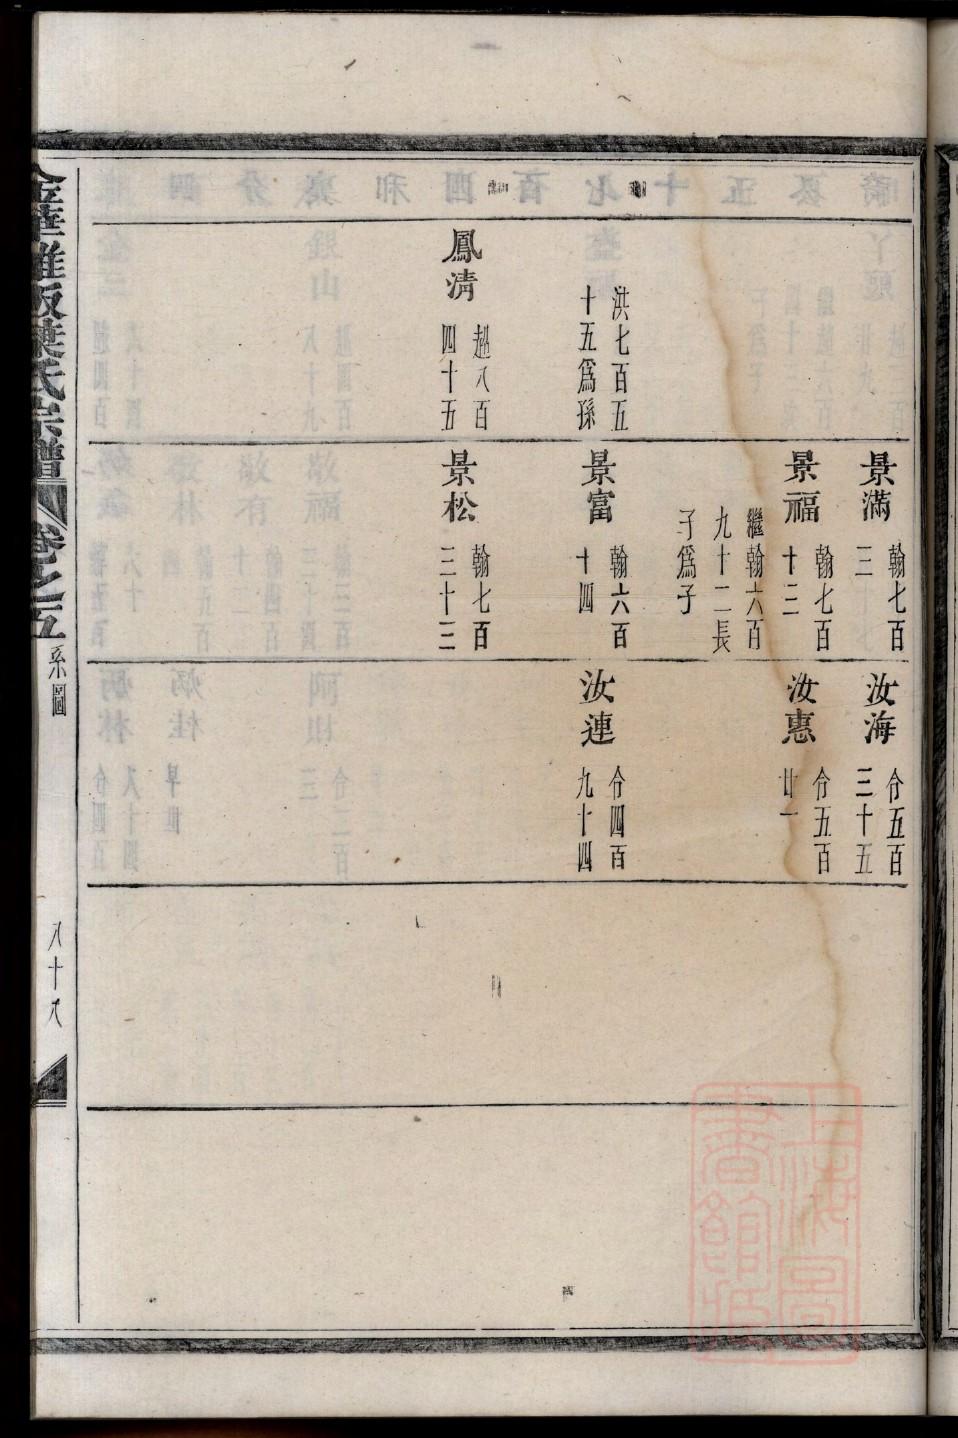 洪七百五
十五爲孫
鳳清
趙八百
四十五
景滿
翰七百
三
景福
翰七百
十三
繼翰六百
九十二長
子爲子
景富
翰六百
十四
景松
翰七百
三十三
汝海
仓五百
三十五
汝惠
仓五百
廿一
汝連
仓四百
九十四
葉氏宗譜
卷之五
系圖
八十八
上海圖
書館藏